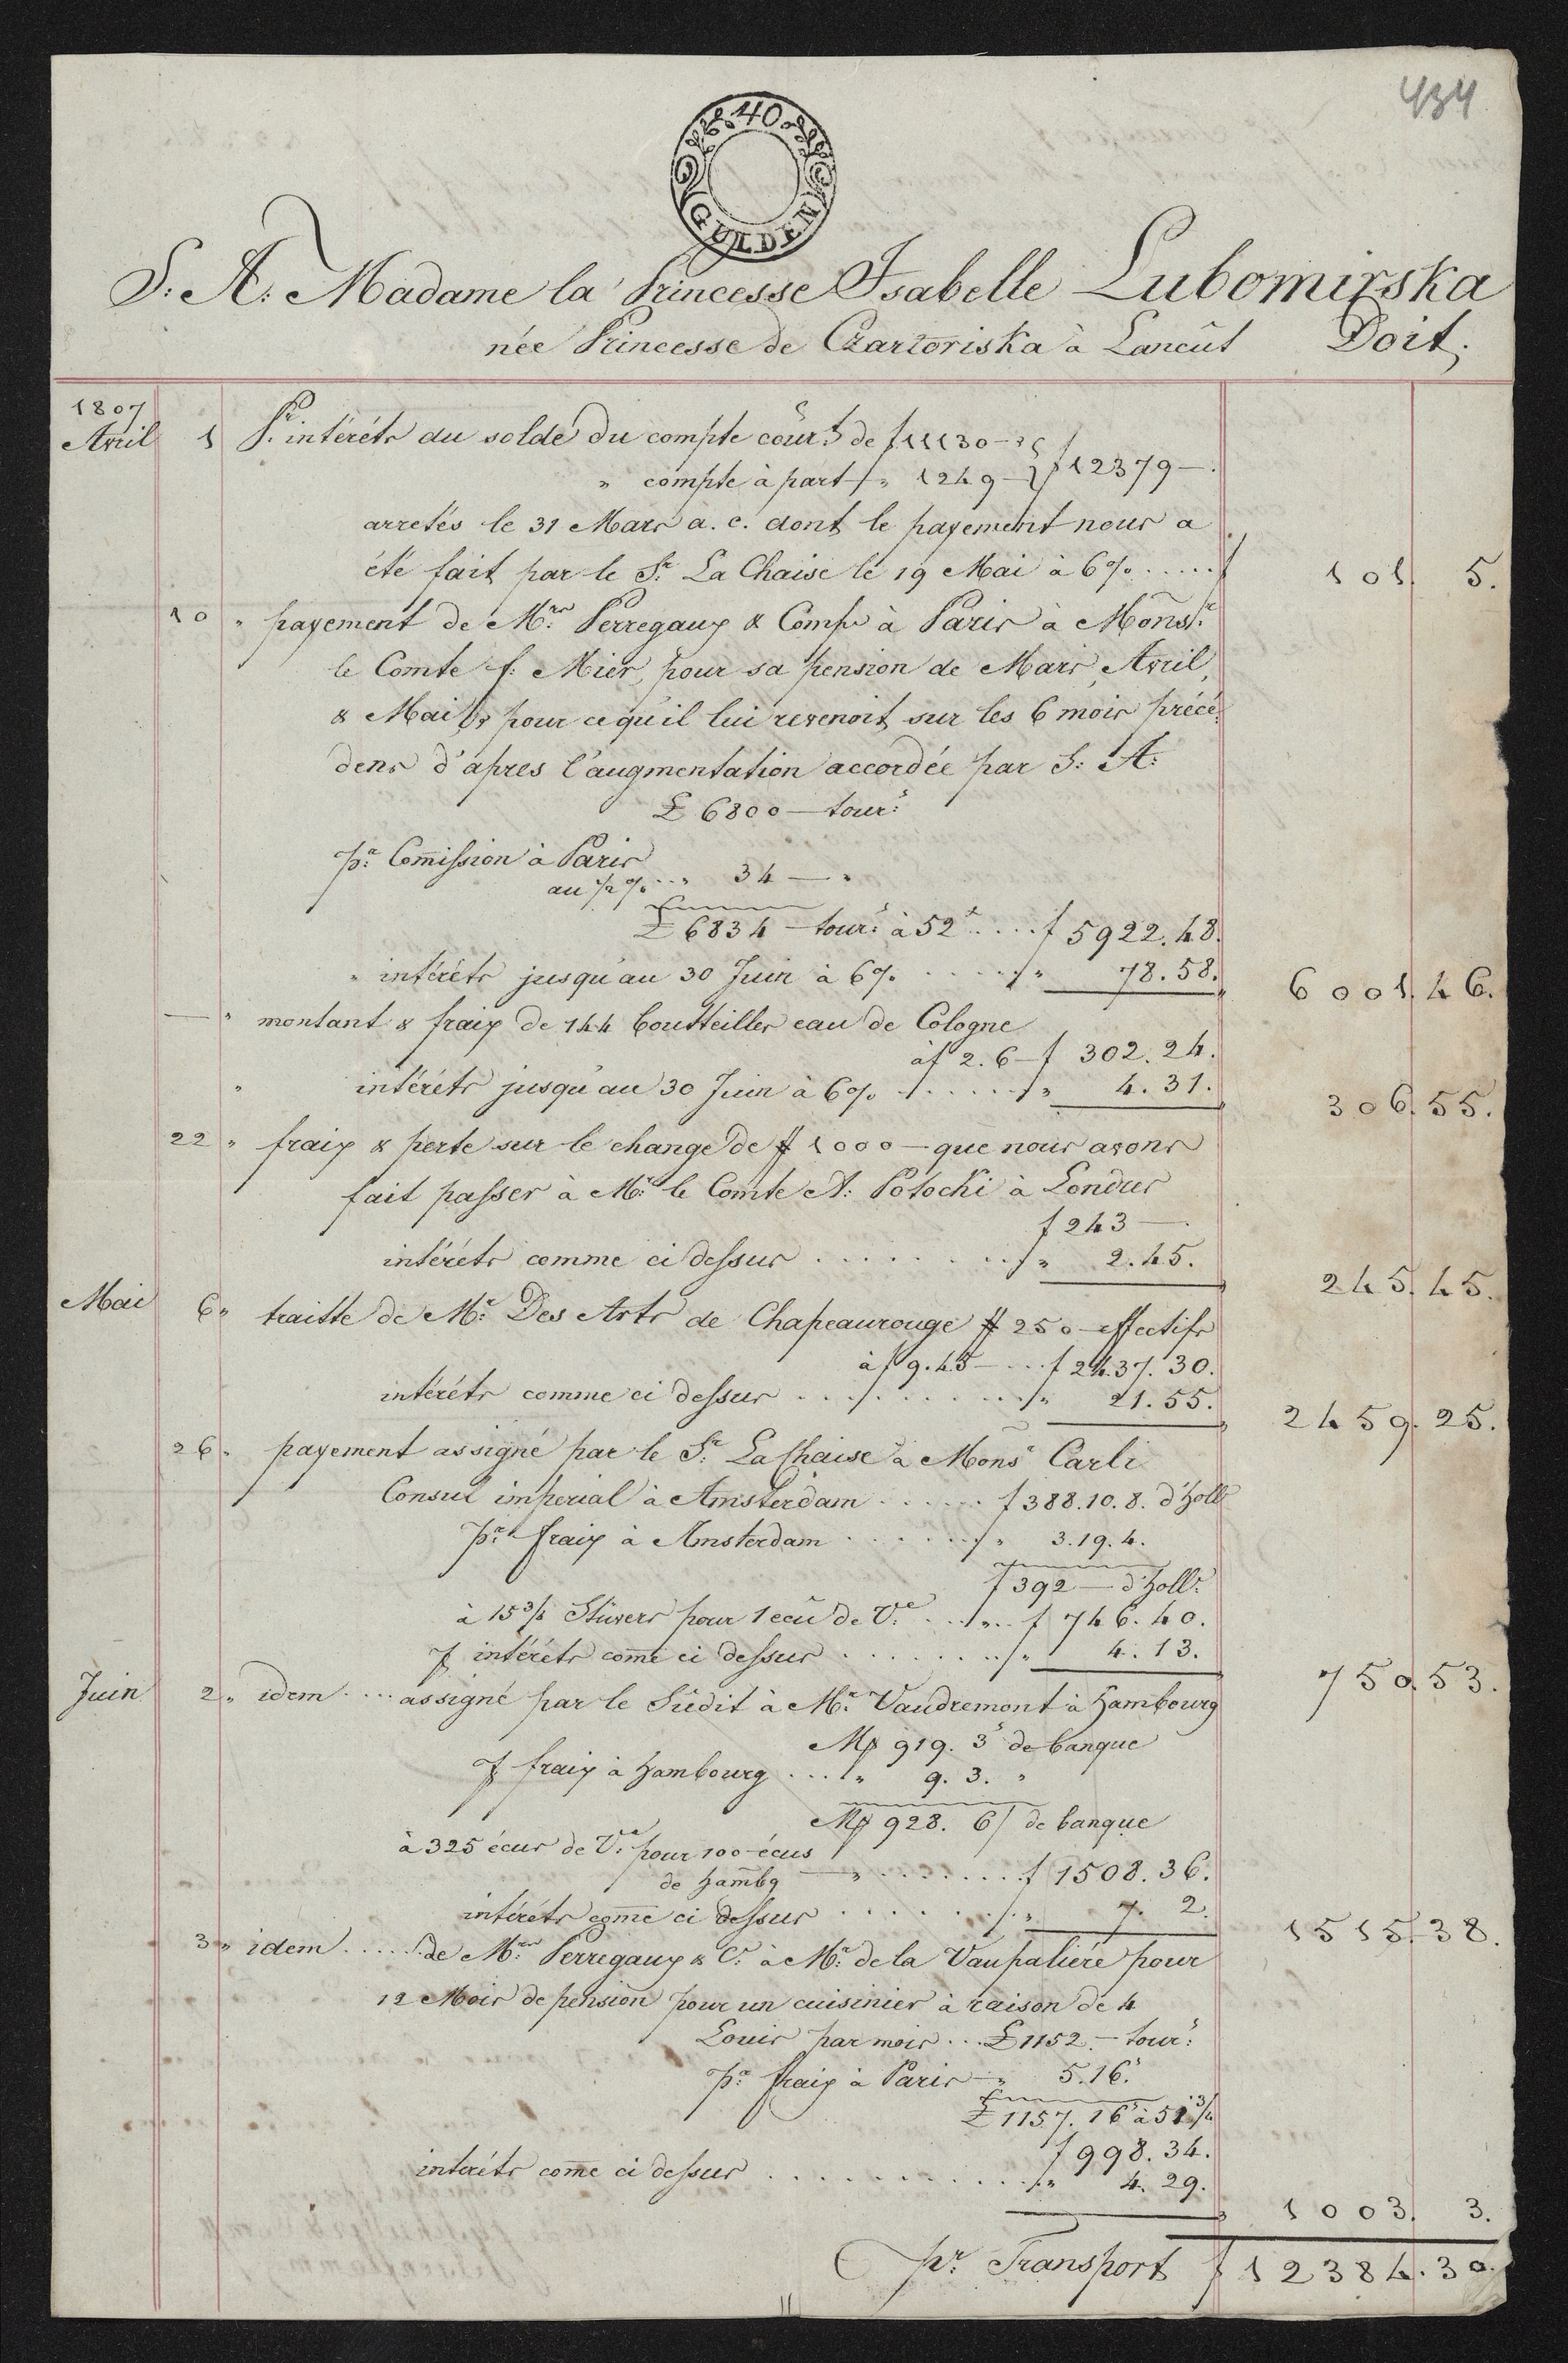 434
40
GULDEN
S: A: Madame la Princesse Isabelle Lubomirska
née Princesse de Czartoriska à Lancût Doit.
1807
Avril 1 Pr. intérêts du solde du compte cour.t de f 11130 — } f 12379 — .
" compte à part " 1249 —
arretés le 31 Mars a. c. dont le payement nous a
été fait par le Sr. La Chaise le 19 Mai à 6% ..... f 101. 5.
10 " payement de Mrs. Perregaux & Comp. à Paris à Monsr.
le Comte f. Mier, pour sa pension de Mars, Avril,
& Mai, & pour ce qu'il lui revenoit sur les 6 mois précé-
dens d'apres l'augmentation accordée par S: A:
£ 6800 — tour.s
pr. Comission à Paris
au 1/2 % ... " 34 — "
£ 6834 — tour.s à 52 x .... f 5922. 48.
" intérêts jusqu'au 30 Juin à 6% ..... " 78. 58. " 6001. 46.
— " montant & fraix de 144 boutteilles eau de Cologne
à f 2. 6 — f 302. 24.
" intérêts jusqu'au 30 Juin à 6% ..... " 4. 31. " 306. 55.
22 " fraix & perte sur le change de # 1000 — que nous avons
fait passer à Mr. le Comte A: Potocki à Londres
f 243 — .
intérêts comme ci dessus ........ " 2. 45. " 245. 45.
Mai 6 " traitte de Mr. Des Arts de Chapeaurouge # 250 — effectifs
à f 9. 45 — ... f 2437. 30.
intérêts comme ci dessus ........ " 21. 55. " 2459. 25.
26 " payement assigné par le Sr. La Chaise à Monsr Carli
Consul imperial à Amsterdam ...... f 388. 10. 8. d'holl.
pr. fraix à Amsterdam ...... " 3. 19. 4.
f 392 — d'holl.
à 15 3/4 Stüvers pour 1 ecû de Ve. ... f 746. 40.
intérêts come ci dessus ....... " 4. 13. 750. 53.
Juin 2 " idem .... assigné par le Sûdit à Mr. Vaudremont à Hambourg
M 919. 3 s de banque
fraix à Hambourg ... " 9. 3. "
M 928. 6 / de banque
à 325 écus de Ve. pour 100 écus
de Hambg — " ....... f 1508. 36.
intérêts come ci dessus ...... " 7. 2. 1515. 38.
3 " idem ..... de Mrs. Perregaux & C. à Mr. de la Vaupalière pour
12 Mois de pension pour un cuisinier à raison de 4
Louis par mois ... £ 1152. — tour.s
pr. fraix à Paris — " 5. 16. s
£ 1157. 16 s à 51 3/4
f 998. 34.
intérêts come ci dessus .......... " 4. 29. " 1003. 3.
pr. Transport f 12384. 30.